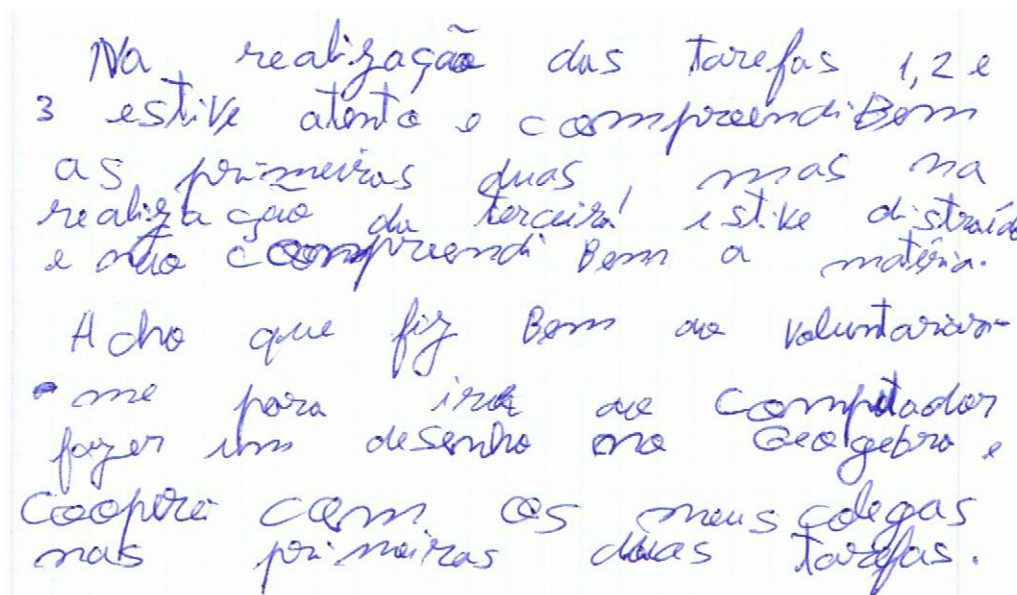 Na realização das tarefas 1,2 e
3 estive atento e compreendi Bem
as primeiras duas, mas na
realização da terceira estive distraído
e não compreendi Bem a matéria.
Acho que fiz Bem ao voluntariar-
-me para ir ao computador
fazer um desenho no Geogebra, e
cooperei com os meus colegas
nas primeiras duas tarefas.